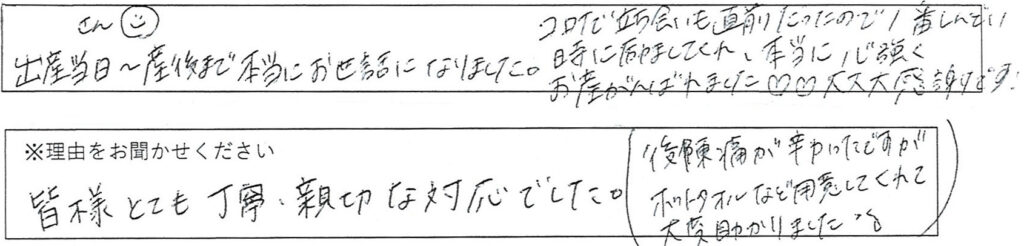 さん
出産当日～産後まで本当にお世話になりました。
コロナで立ち会いも直前だったので1番しんどい
時に励ましてくれ、本当に心強く
お産がんばれました♡♡大大大感謝です!
※理由をお聞かせください
皆様とても丁寧、親切な対応でした。
後陣痛が辛かったですが
ホットタオルなど用意してくれて
大変助かりました